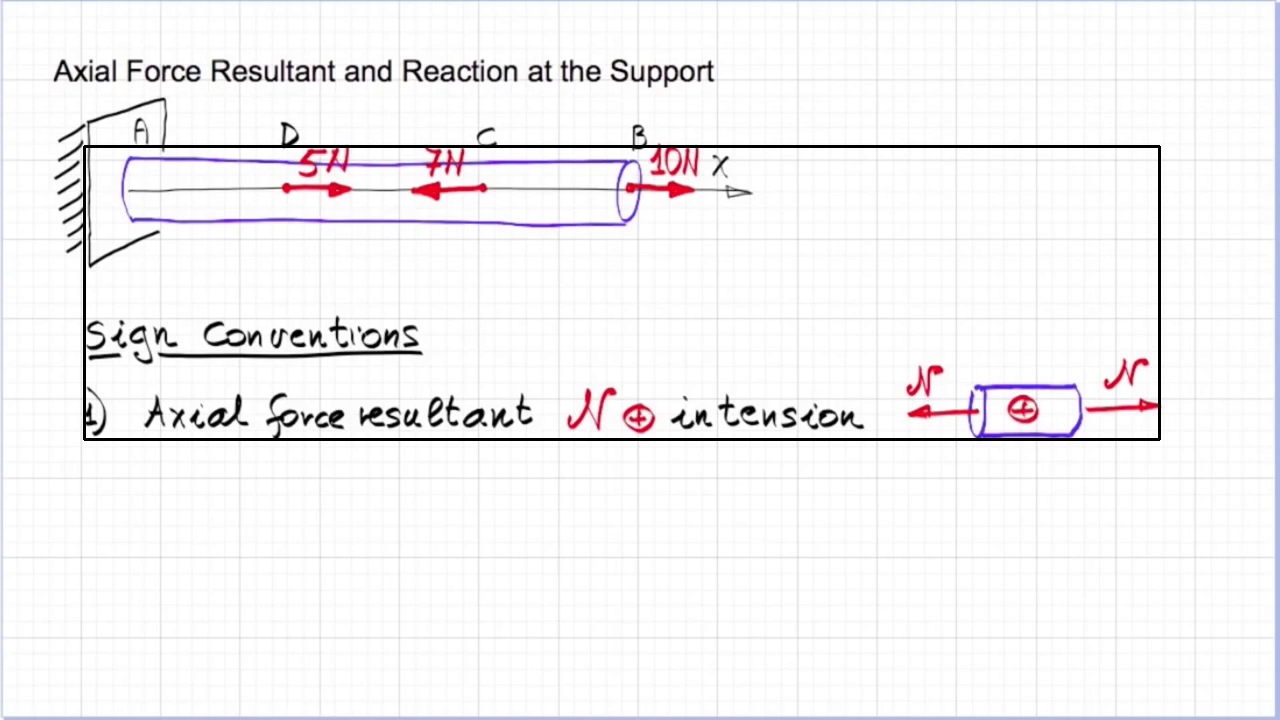 Axial Force Resultant and Reaction at the Support
A D C B
5N 7N 10N X
Sign Conventions
1) Axial force resultant N + in tension N + N